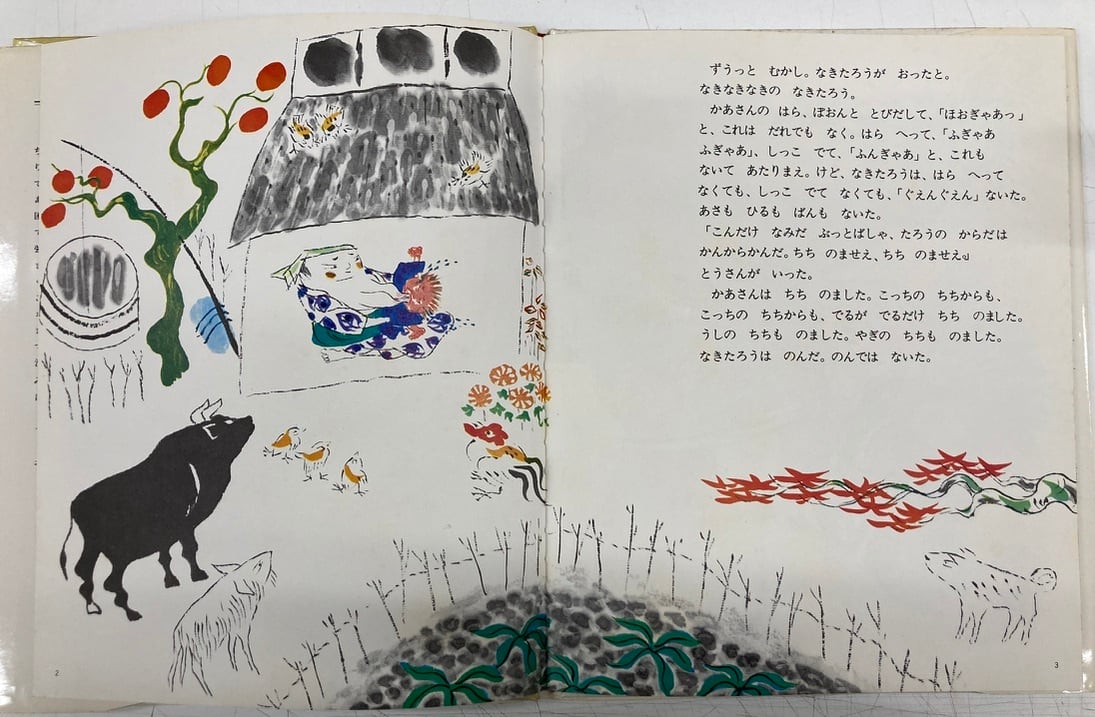 ずうっと　むかし。なきたろうが　おったと。
なきなきなきの　なきたろう。
かあさんの　はら、ぽおんと　とびだして、「ほおぎゃあっ」
と、これは　だれでも　なく。はら　へって、「ふぎゃあ
ふぎゃあ」、しっこ　でて、「ふんぎゃあ」と、これも
ないて　あたりまえ。けど、なきたろうは、はら　へって
なくても、しっこ　でて　なくても、「ぐぇんぐぇん」ないた。
あさも　ひるも　ばんも　ないた。
「こんだけ　なみだ　ぶっとばしゃ、たろうの　からだは
かんからかんだ。ちち　のませえ、ちち　のませえ。」
とうさんが　いった。
かあさんは　ちち　のました。こっちの　ちちからも、
こっちの　ちちからも、でるが　でるだけ　ちち　のました。
うしの　ちちも　のました。やぎの　ちちも　のました。
なきたろうは　のんだ。のんでは　ないた。
2
3